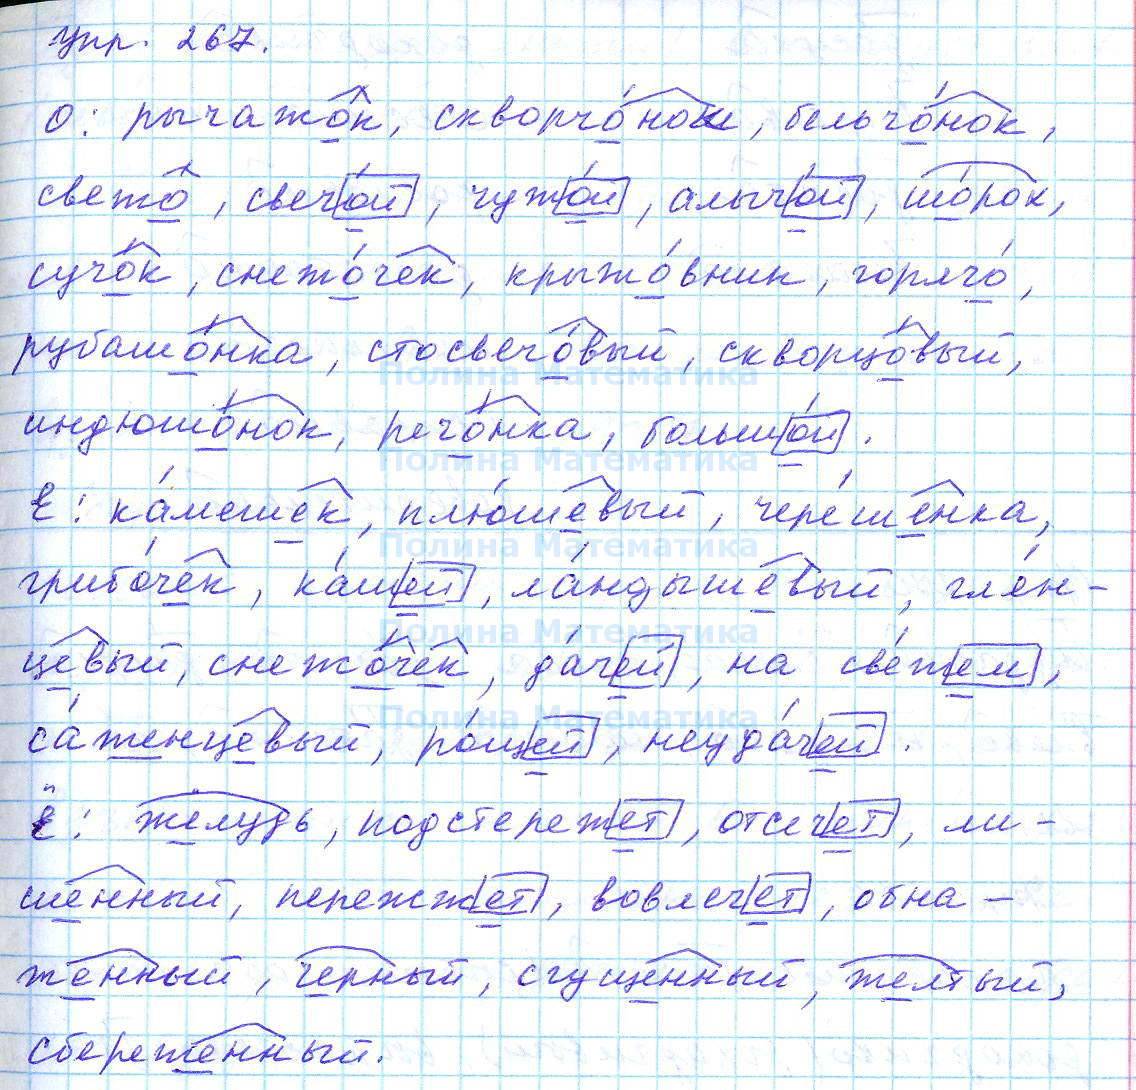 упр. 267.
о: рычажок, скворчонок, бельчонок,
свежо, свечой, чужой, алычой, шорок,
сучок, снежочек, крыжовник, горячо,
рубашонка, стосвечовый, скворцовый,
Полина Математика
индюшонок, речонка, большой.
Полина Математика
Е: камешек, плюшевый, черешенка,
Полина Математика
грибочек, кашей, ландышевый, глян-
Полина Математика
цевый, снежочек, дачей, на свежем,
Полина Математика
саженцевый, рощей, неудачей.
Ё: желудь, подстережет, отсечет, ли-
шенный, пережжет, вовлечет, обна-
женный, черный, сгущенный, желтый,
сбереженный.